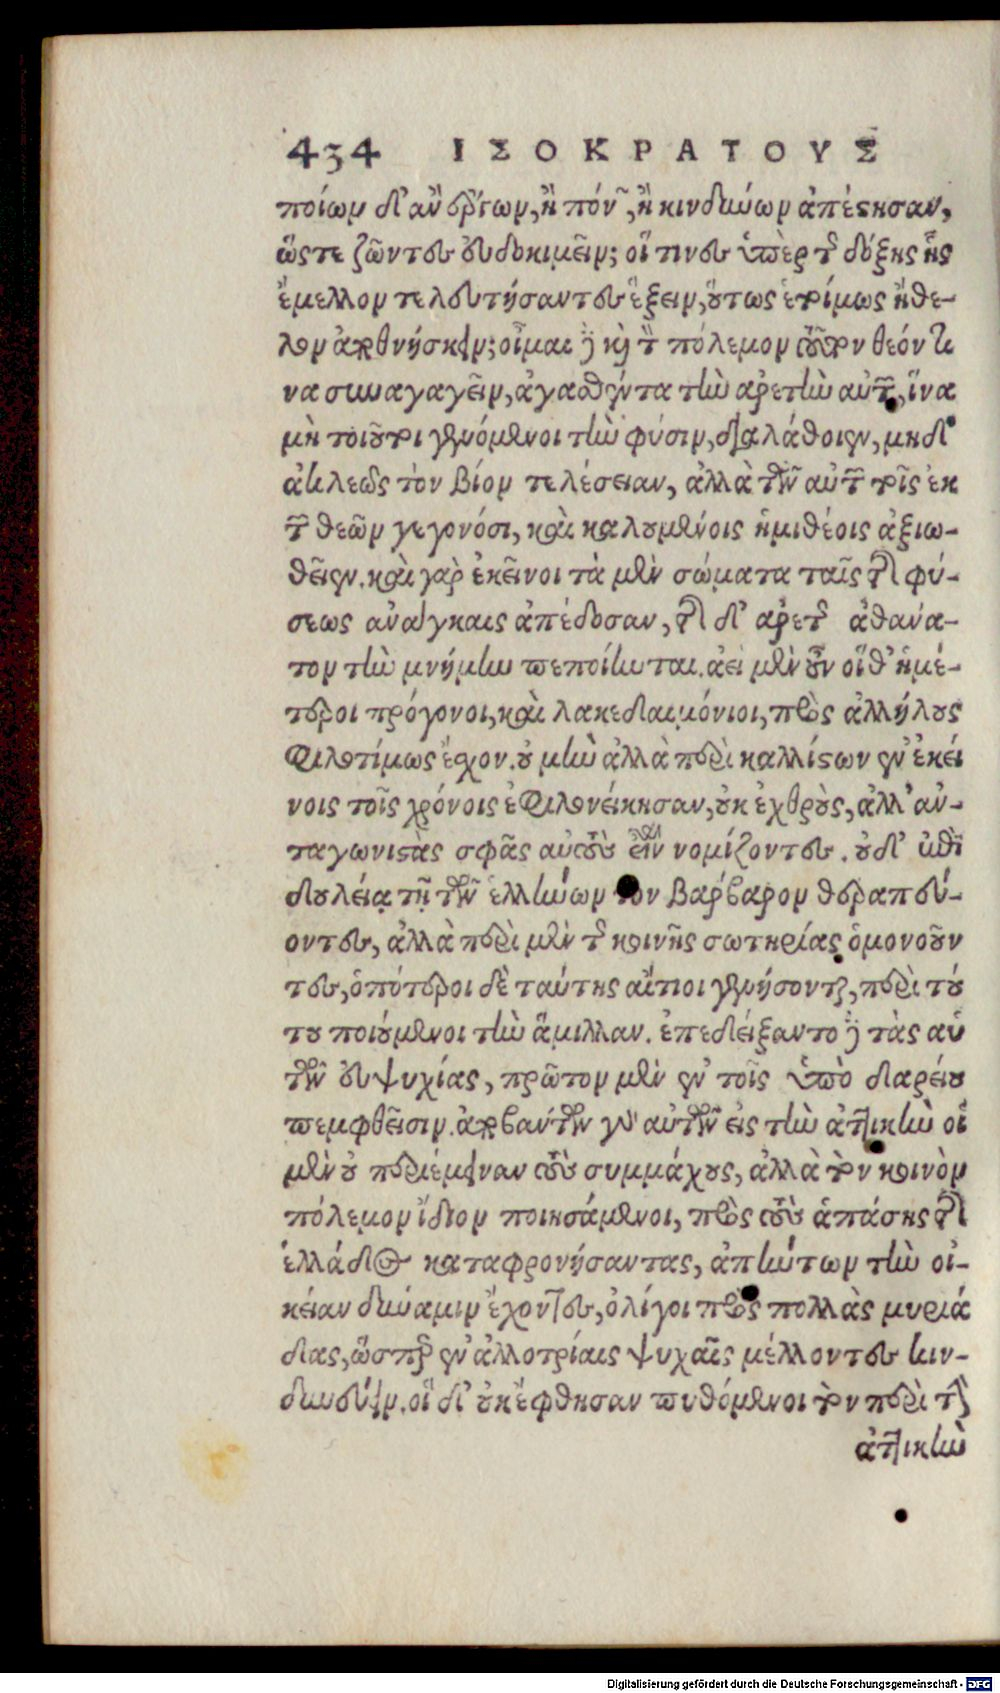 434 ΙΣΟΚΡΑΤΟΥΣ
ποίων δ' ἂν ἔργων, ἢ πόνων, ἢ κινδύνων ἀπέστησαν,
ὥστε ζῶντες εὐδοκιμεῖν; οἵ τινες ὑπὲρ τῆς δόξης ἧς
ἔμελλον τελευτήσαντες ἕξειν, οὕτως ἑτοίμως ἤθε-
λον ἀποθνήσκειν; οἶμαι δὲ καὶ τὸν πόλεμον τοῦτον θεόν τι
να συναγαγεῖν, ἀγασθέντα τὴν ἀρετὴν αὐτῶν, ἵνα
μὴ τοιοῦτοι γενόμενοι τὴν φύσιν, διαλάθοιεν, μηδ'
ἀκλεῶς τὸν βίον τελέσειαν, ἀλλὰ τῶν αὐτῶν τοῖς ἐκ
τῶν θεῶν γεγονόσι, καὶ καλουμένοις ἡμιθέοις ἀξιω-
θεῖεν. καὶ γὰρ ἐκεῖνοι τὰ μὲν σώματα ταῖς τῆς φύ-
σεως ἀνάγκαις ἀπέδοσαν, τῆς δ' ἀρετῆς ἀθάνα-
τον τὴν μνήμην πεποίηνται. ἀεὶ μὲν οὖν οἵθ' ἡμέ-
τεροι πρόγονοι, καὶ λακεδαιμόνιοι, πρὸς ἀλλήλους
φιλοτίμως ἔχον. οὐ μὴν ἀλλὰ περὶ καλλίστων ἐν ἐκεί
νοις τοῖς χρόνοις ἐφιλονείκησαν, οὐκ ἐχθροὺς, ἀλλ' ἀν-
ταγωνιστὰς σφᾶς αὐτοὺς εἶναι νομίζοντες. οὐδ' ἐπὶ
δουλείᾳ τῇ τῶν ἑλλήνων τὸν βάρβαρον θεραπεύ-
οντες, ἀλλὰ περὶ μὲν τῆς κοινῆς σωτηρίας ὁμονοοῦν
τες, ὁπότεροι δὲ ταύτης αἴτιοι γενήσονται, περὶ τού
του ποιούμενοι τὴν ἅμιλλαν. ἐπεδείξαντο δὲ τὰς αὑ
τῶν εὐψυχίας, πρῶτον μὲν ἐν τοῖς ὑπὸ δαρείου
πεμφθεῖσιν. ἀποβάντων γὰρ αὐτῶν εἰς τὴν ἀττικὴν οἱ
μὲν οὐ περιέμειναν τοὺς συμμάχους, ἀλλὰ τὸν κοινὸν
πόλεμον ἴδιον ποιησάμενοι, πρὸς τοὺς ἁπάσης τῆς
ἑλλάδος καταφρονήσαντας, ἀπήντων τὴν οἰ-
κείαν δύναμιν ἔχοντες, ὀλίγοι πρὸς πολλὰς μυριά
δας, ὥσπερ ἐν ἀλλοτρίαις ψυχαῖς μέλλοντες κιν-
δυνεύειν. οἱ δ' οὐκ ἔφθησαν πυθόμενοι τὸν περὶ τὴν
ἀττικὴν
Digitalisierung gefördert durch die Deutsche Forschungsgemeinschaft - DFG